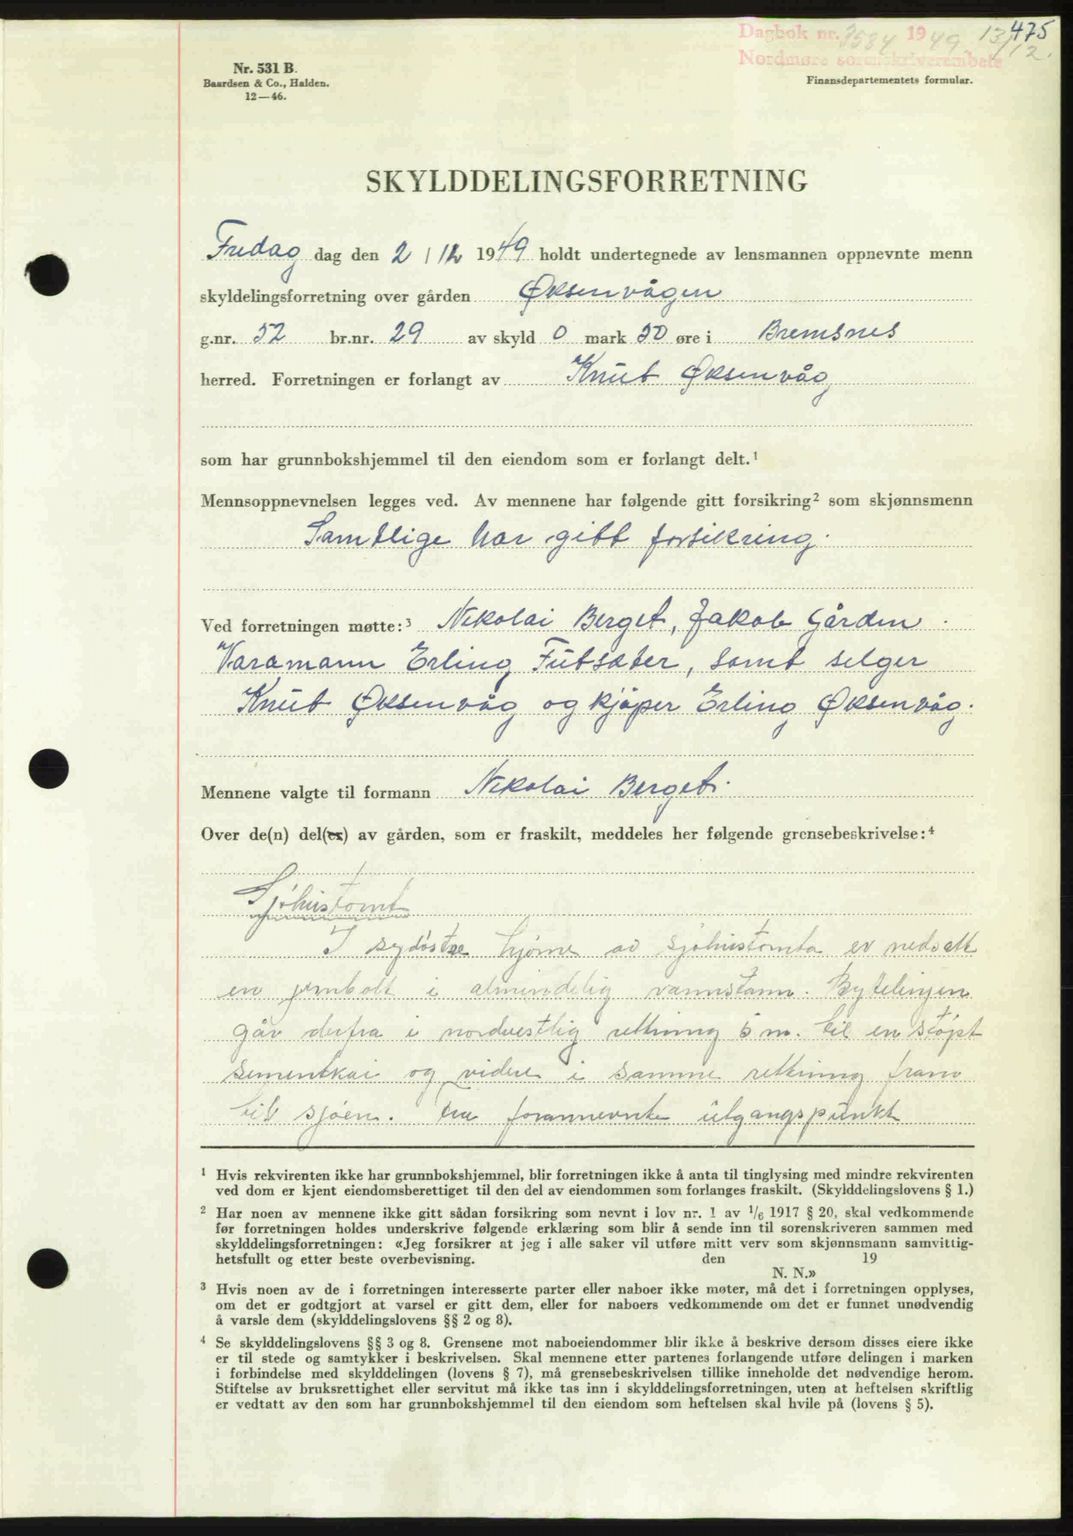 475
Dagbok nr. 3584 1949 13/12.
Nordmøre sorenskriverembete
Nr. 531 B.
Baardsen & Co., Halden.
12—46.
Finansdepartementets formular.
SKYLDDELINGSFORRETNING
Fredag dag den 2 / 12 1949 holdt undertegnede av lensmannen oppnevnte menn
skyldelingsforretning over gården Øksenvågen
g.nr. 52 br.nr. 29 av skyld 0 mark 50 øre i Bremsnes
herred. Forretningen er forlangt av Knut Øksenvåg
som har grunnbokshjemmel til den eiendom som er forlangt delt.¹
Mennsoppnevnelsen legges ved. Av mennene har følgende gitt forsikring² som skjønnsmenn
Samtlige har gitt forsikring.
Ved forretningen møtte:³ Nikolai Berget, Jakob Gården
Varamann Erling Futsæter, samt selger
Knut Øksenvåg og kjøper Erling Øksenvåg.
Mennene valgte til formann Nikolai Berget.
Over de(n) del(er) av gården, som er fraskilt, meddeles her følgende grensebeskrivelse:⁴
Sjøhustomt
I sydøstre hjørne av sjøhustomta er nedsatt
en jernbolt i almindelig vannstann. Bytelinjen
går derfra i nordvestlig rettning 5 m. til en støpt
sementkai og videre i samme rettning fram
til sjøen. Fra forannevnte utgangspunkt
¹ Hvis rekvirenten ikke har grunnbokshjemmel, blir forretningen ikke å anta til tinglysing med mindre rekvirenten
ved dom er kjent eiendomsberettiget til den del av eiendommen som forlanges fraskilt. (Skylddelingslovens § 1.)
² Har noen av mennene ikke gitt sådan forsikring som nevnt i lov nr. 1 av 1/6 1917 § 20, skal vedkommende
før forretningen holdes underskrive følgende erklæring som blir å sende inn til sorenskriveren sammen med
skylddelingsforretningen: «Jeg forsikrer at jeg i alle saker vil utføre mitt verv som skjønnsmann samvittig-
hetsfullt og etter beste overbevisning. den 19
N. N.»
³ Hvis noen av de i forretningen interesserte parter eller naboer ikke møter, må det i forretningen opplyses,
om det er godtgjort at varsel er gitt dem, eller for naboers vedkommende om det er funnet unødvendig
å varsle dem (skylddelingslovens §§ 2 og 8).
⁴ Se skylddelingslovens §§ 3 og 8. Grensene mot naboeiendommer blir ikke å beskrive dersom disses eiere ikke
er til stede og samtykker i beskrivelsen. Skal mennene etter partenes forlangende utføre delingen i marken
i forbindelse med skylddelingen (lovens § 7), må grensebeskrivelsen tillike inneholde det nødvendige herom.
Stiftelse av bruksrettighet eller servitut må ikke tas inn i skylddelingsforretningen, uten at heftelsen skriftlig
er vedtatt av den som har grunnbokshjemmel til den eiendom som heftelsen skal hvile på (lovens § 5).